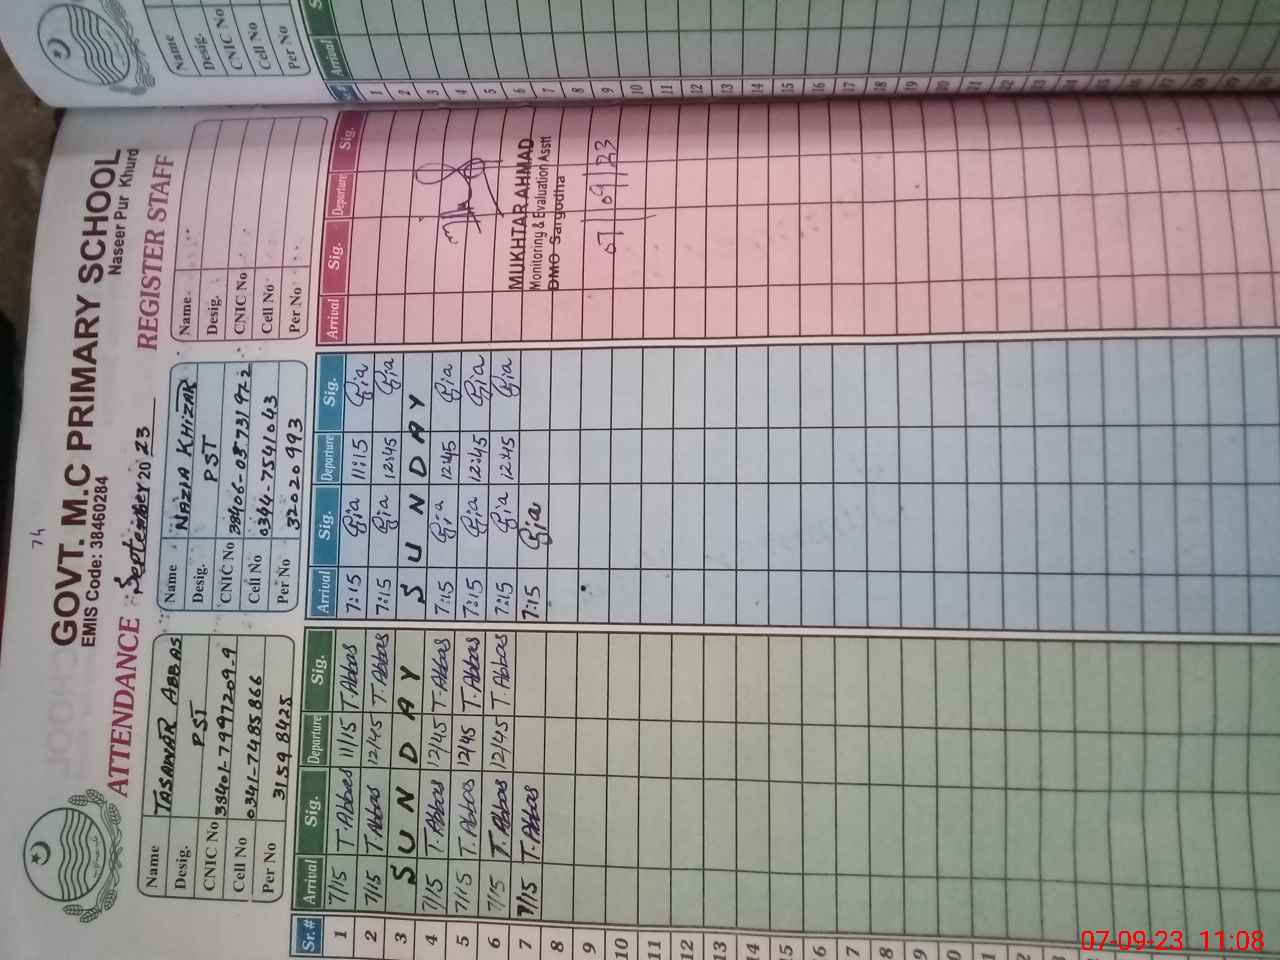 74
GOVT. M.C PRIMARY SCHOOL
EMIS Code: 38460284 Naseer Pur Khurd
ATTENDANCE September 2023 REGISTER STAFF
Name TASAWAR ABBAS
Desig. PST
CNIC No 38401-7997209-9
Cell No 0341-7485866
Per No 31598425
Name NAZIA KHIZAR
Desig. PST
CNIC No 38406-0573197-2
Cell No 0344-7541043
Per No 32020993
Name
Desig.
CNIC No
Cell No
Per No
Sr.# Arrival Sig. Departure Sig. Arrival Sig. Departure Sig. Arrival Sig. Departure Sig.
1 7/15 T.Abbas 11/15 T.Abbas 7:15 11:15
2 7/15 T.Abbas 12/45 T.Abbas 7:15 12:45
3 SUNDAY SUNDAY
4 7/15 T.Abbas 12/45 T.Abbas 7:15 12:45
5 7/15 T.Abbas 12/45 T.Abbas 7:15 12:45
6 7/15 T.Abbas 12/45 T.Abbas 7:15 12:45
7 7/15 T.Abbas 7:15
MUKHTAR AHMAD
Monitoring & Evaluation Asstt
DMO Sargodha
07/09/23
8
9
10
11
12
13
14
15
16
17
18
Name
Desig.
CNIC No
Cell No
Per No
Arrival
1
2
3
4
5
6
7
8
9
10
11
12
13
14
15
16
17
18
19
20
21
22
23
24
25
26
27
28
29
30
07-09-23 11:08